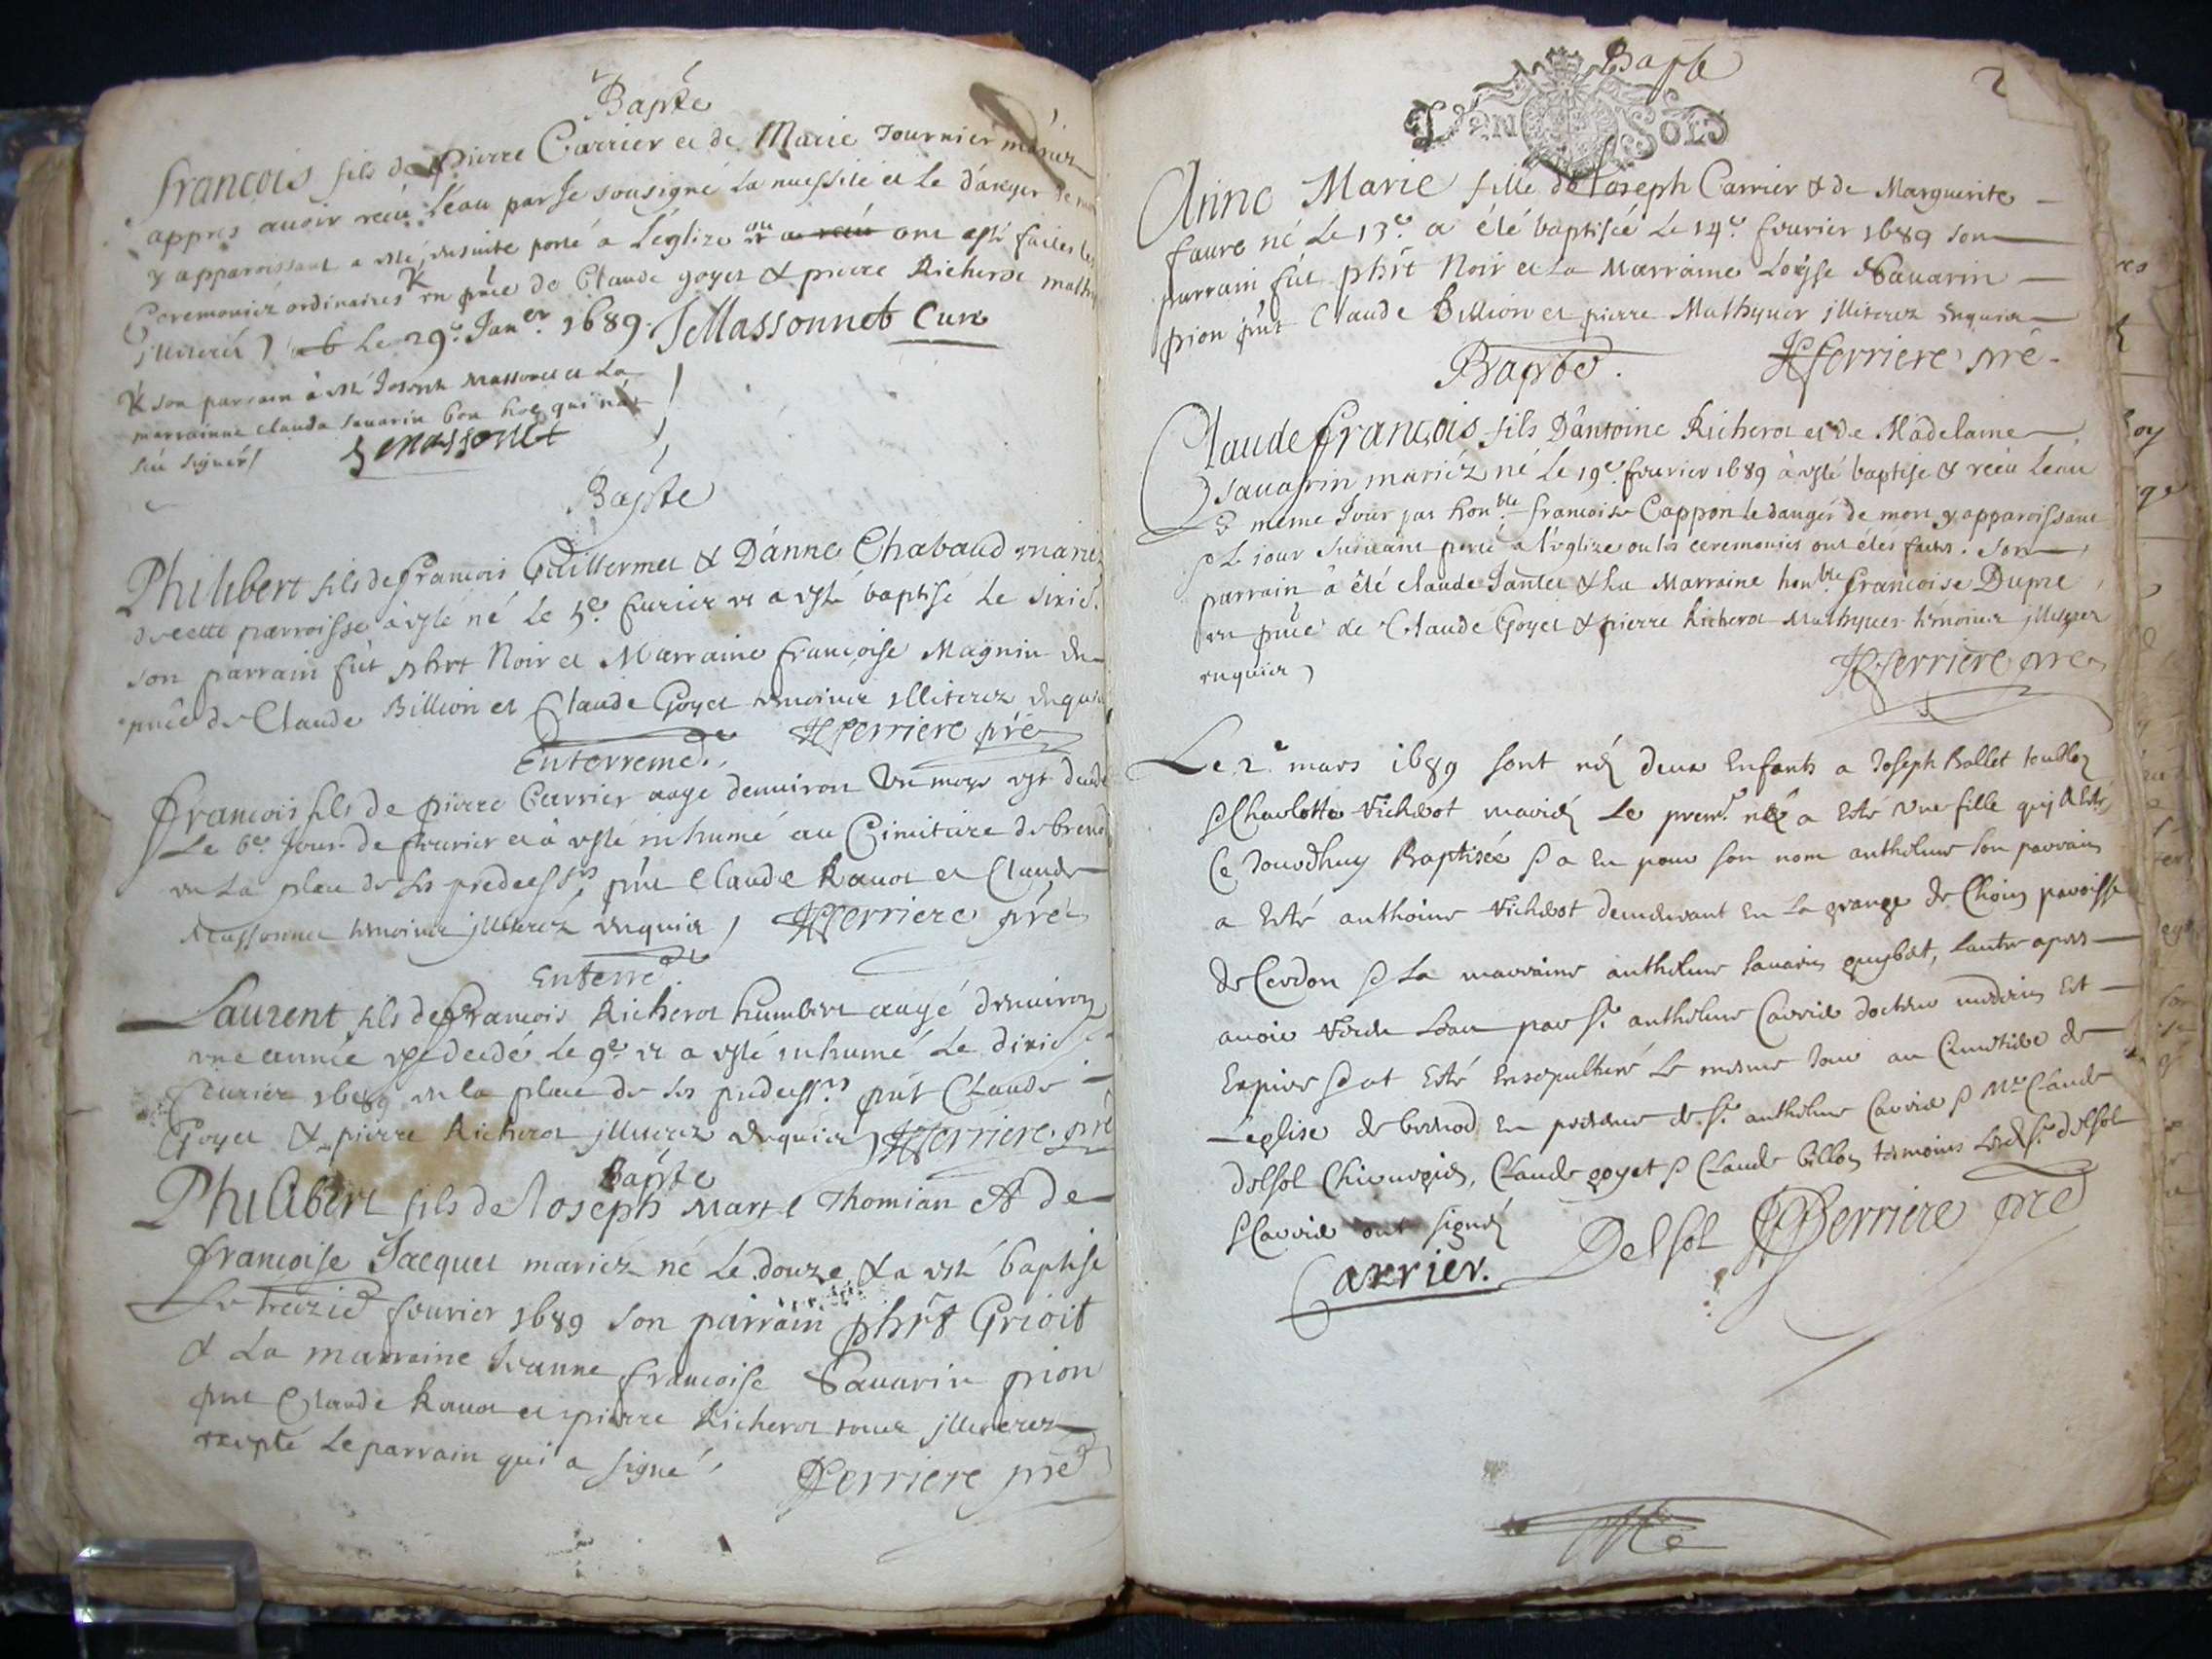 Bapte
françois fils de pierre Carrier et de Marie Tournier mariez
appres auoir receu leau par Je sousigné la et le danger de
y apparoissant a esté ensuite porté a leglize ou ont esté faites les
Ceremonies ordinaires en pñce de Claude goyet & pierre Richerot
illiterés le 29e Janer 1689. JeMassonnet Cure
son parrain à esté Joseph Massonet et La
marrainne Clauda sauarin
seu signer J Massonet
Bapte
Philibert fils de francois Guillermet & D'anne Chabaud mariez
de cette parroisse à esté né Le 5e feurier et a esté baptisé Le sixie.
son parrain fût phrt Noir et Marraine françoise Magnin en
pñce de Claude Billion et Claude Goyet temoins illiterez enquis
Enterremt. Hferriere pre
francois fils de pierre Carrier aagé denuiron un moys est decedé
Le 6e Jour de feurier et à esté inhumé au Cimitiere de
en La place de ses predecessrs, pñt Claude Rauot et Claude
Massonnet temoins illiteréz enquis Hferriere pre
Enterre
Laurent fils de francois Richerot humbert aagé denuiron
une année est decedé Le 9e et a esté inhumé Le dixie
feurier 1689 en la place de ses predecessrs pñt Claude
Goyet & pierre Richerot illiterez enquis Hferriere pre
Bapte
Philibert fils de Joseph Martel Thomian & de
françoise Jacquet mariéz né Le douze & a esté baptisé
Le treizie feurier 1689 son parrain phrt Grioit
& La marraine Jeanne francoise Sauarin prion
pñt Claude Rauot et pierre Richerot tous illiterez
excepté Le parrain qui a signé Hferriere pre
Bapte
2
Den Sols
Anne Marie fille de Joseph Carrier & de Marguerite
faure né Le 13e a été baptisée Le 14e feurier 1689 son
parrain fût phrt Noir et La Marraine Loüyse Sauarin
prion pñt Claude Billion et pierre Mathyuer illiterez enquis
Bapte. Hferriere pre
Claude françois fils D'antoine Richerot et de Madelaine
sauarin mariéz né Le 19e feurier 1689 à esté baptisé & receu Leau
Le meme Jour par honble francoise Cappon le danger de mort y apparoissant
& Le jour suiuant porté a l'eglize ou les ceremonies ont étés faites. son
parrain à été Claude Jantet & La Marraine honble françoise Dupré
en pñce de Claude Goyet & pierre Richerot Mathyuer témoins illiterez
enquis Hferriere pre
Le 2e mars 1689 sont néz deux Enfants a Joseph Ballet
& Charlotte Vichot mariéz Le premr né a Esté une fille quj a Esté
Ce Jourdhuy Baptisée & a Eu pour son nom anthelme son parrain
a Esté anthoine Vichot demeurant En La grange de Choin paroisse
de Cerdon & La marraine anthelme sauarin, Lautre apres
auoir Leau par Sr anthelme Carrier docteur medecin Est
Expire & at Esté Ensepulturé Le mesme Jour au Cimetiere de
Leglise de En presence de Sr anthelme Carrier & Mre Claude
delsol Chirurgien, Claude goyet & Claude billon temoins Led Sr delsol
& Carrier ont signéz
Carrier. Delsol Hferriere pre